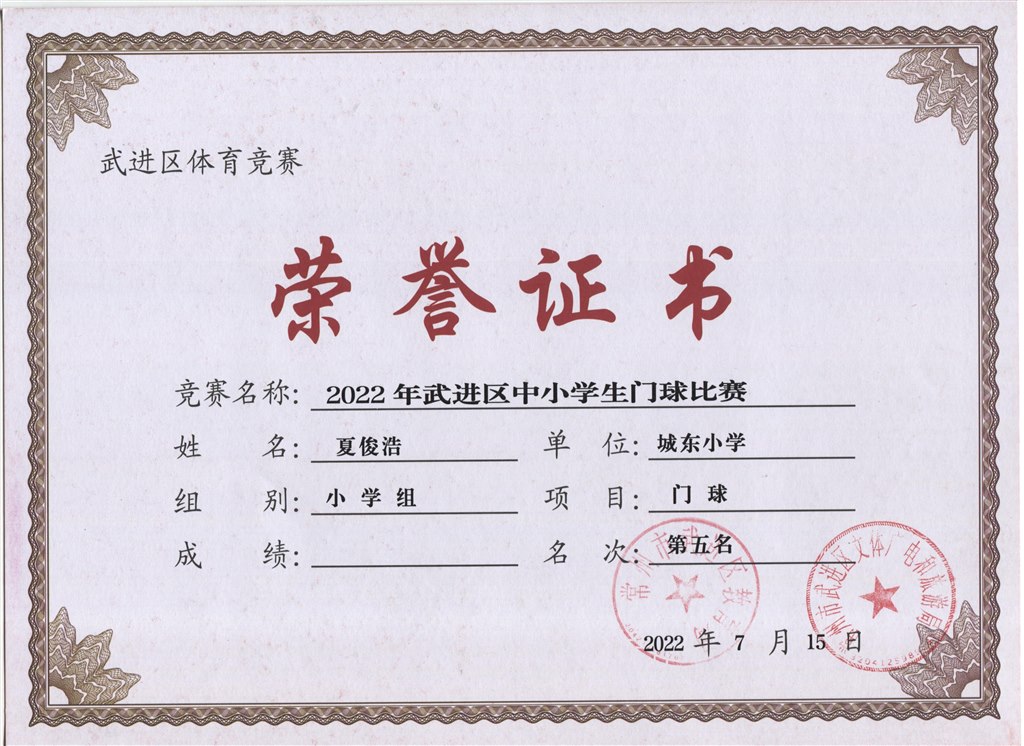 武进区体育竞赛
荣誉证书
竞赛名称: 2022年武进区中小学生门球比赛
姓 名: 夏俊浩 单 位: 城东小学
组 别: 小学组 项 目: 门球
成 绩: 名 次: 第五名
常州市武进区教育局
常州市武进区文体广电和旅游局
2022 年 7 月 15 日